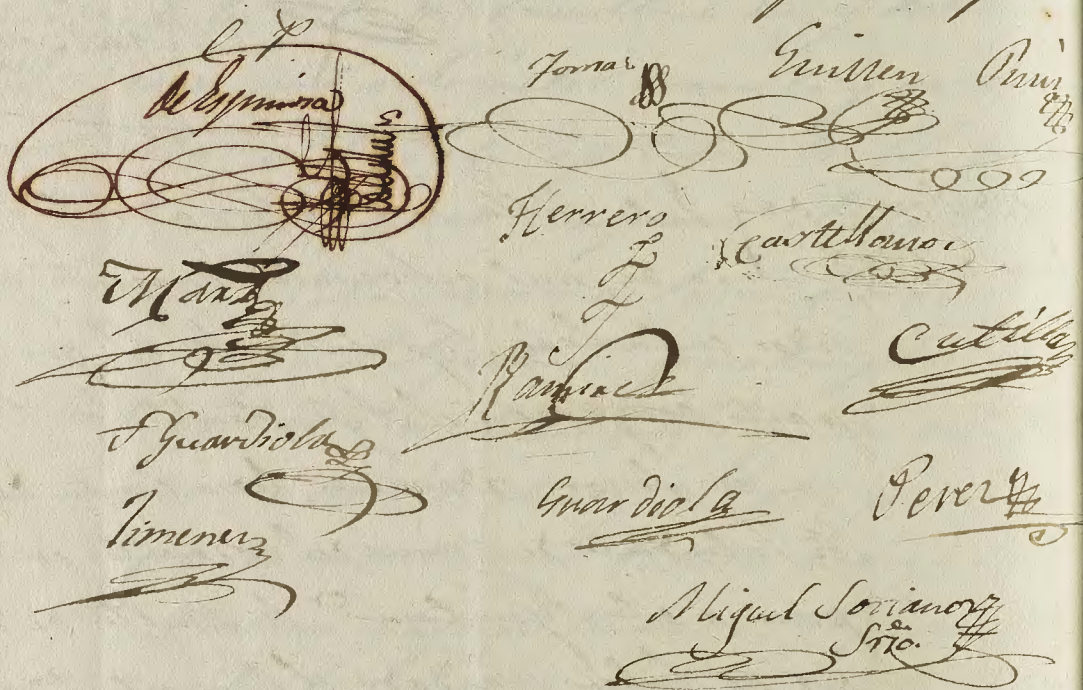 de Espinosa
Tomas
Guillen
Herrero
Castellanos
Cutillas
Ramirez
F Guardiola
Guardiola
Perez
Ximenez
Miguel Soriano
Srio.